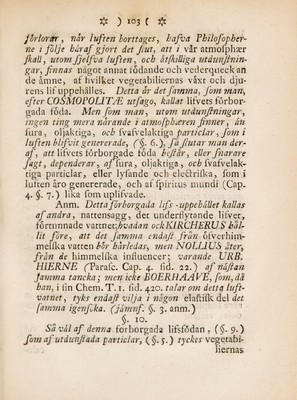 * ) 103 ( *
förlorar, når luften borttages, hafva Philosopher-
ne i följe håraf gjort det slut, att i vår atmosphær
skall, utom sjelfva luften, och åtskilliga utdunstnin-
gar, finnas något annat födande och vederqueckan
de ämne, af hvilket vegetabiliernas växt och dju-
rens lif uppehålles. Detta år det samma, som man,
efter COSMOPOLITÆ utsago, kallat lifvets förbor-
gada föda. Men som man, utom utdunstningar,
ingen ting mera nårande i atmosphæren finner, än
sura, oljaktiga, och svafvelaktiga particlar, som i
luften blifvit genererade, (§. 6.), så slutar man der-
af, att lifvets förborgade föda består, eller snarare
sagt, dependerar, af sura, oljaktiga, och svafvelak-
tiga particlar, eller lyfande och electriska, som i
luften åro genererade, och af spiritus mundi (Cap.
4. §. 7.) lika som uplifvade.
Anm. Detta förborgada lifs-uppehållet kallas
af andra, nattensagg, det underflytande lifvet,
förtunnade vattnet; hvadan ock KIRCHERUS hål-
lit före, att det samma endast från öfverhim-
melska vatten bör hårledas, men NOLLIUS åter,
från de himmelska influencer; varande URB.
HIERNE (Parasc. Cap. 4. fid. 22.) af nåstan
samma tancka; men icke BOERHAAVE, som, då
han, i sin Chem. T. 1. fid. 420. talar om detta luft-
vatnet, tyks endast vilja i någon elastisk del det
samma igensöka. (jåmnf. §. 3. anm.)
§. 10.
Så vål af denna forborgada lifsfödan, (§. 9.)
som af utdunstada particlar, (§. 5.) tyckes vegetabi-
liernas